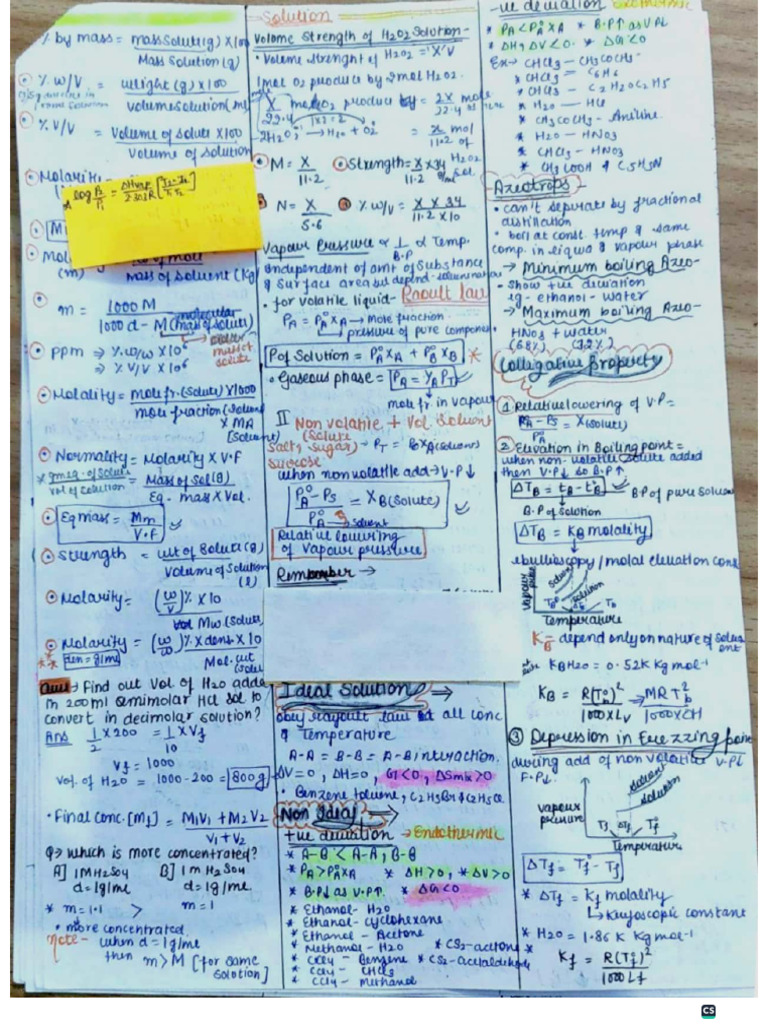 Solution
% by mass = mass Solute(g) X 100
Mass Solution (g)
% w/v = weight (g) x 100
volume solution (ml
% V/V = Volume of Solute X 100
Volume of Solution
Molarity
log P2/P1 = ΔHvap/2.303R [T2-T1/T1T2]
Mol
(m)
Mass of Solvent (Kg)
m = 1000 M
1000 d - M (mass of solute)
molecular
PPM ⇒ % w/w X 10⁶
⇒ % V/V X 10⁶
Molality = mole fr. (Solute) X 1000
mole fraction (solvent
X MA
(Solvent)
Normality = Molarity X V.F
gmeq. of Solute = Mass of Sol (g)
Vol of Solution Eq. mass X Vol.
Eq mass = Mm
V.F
Strength = wt of Solute (g)
Volume of Solution
(l)
Molarity = (w/v) % X 10
Mw (Solute
Molarity = (w/w) % X dens X 10
den = g/ml Mol. wt
(Solu
Ques → Find out Vol of H2O added
in 200 ml semimolar HCl sol to
convert in decimolar solution?
Ans 1/2 x 200 = 1/10 x Vf
Vf = 1000
Vol. of H2O = 1000 - 200 = 800 g
Final conc. [Mf] = M1V1 + M2V2
V1 + V2
Q → which is more concentrated?
A] 1 M H2SO4 B] 1 m H2SO4
d = 1g/ml d = 1g/ml
* m = 1.1 > m = 1
more concentrated.
Note - when d = 1g/ml
then m > M [for same
solution]
Volume Strength of H2O2 Solution -
Volume strenght of H2O2 = 'X' V
1 mol O2 produce by 2 mol H2O2.
X/22.4 mole O2 produce by = 2X/22.4 mole
2H2O2 → H2O + O2 = X/11.2 mol of
H2O2
M = X/11.2 Strength = X x 34/11.2
N = X/5.6 % w/v = X x 34/11.2 x 10
Vapour Pressure ∝ 1/B.P ∝ Temp.
independent of amt of Substance
& Surface area but depend
for volatile liquid - Raoult law
PA = P°A XA → Mole fraction.
pressure of pure component
P of Solution = P°A XA + P°B XB *
Gaseous phase = PA = YA PT
mole fr. in vapour
II Non Volatile + Vol Solvent
(Solute
Salt, Sugar) → PT = P° XA (solvent)
sucrose
when non volatile add → V.P ↓
P°A - PS = XB (Solute)
P°A → Solvent
Relative lowering
of Vapour pressure
Remember →
Ideal Solution →
obey rayoult law at all conc
& Temperature
A-A = B-B = A-B interaction.
ΔV=0, ΔH=0, G<0, ΔSmix>0
Benzene toluene, C2H5Br & C2H5Cl
Non Ideal →
+ve deviation → Endothermic
* A-B < A-A, B-B
* PA > P°A XA * ΔH>0, * ΔV>0
* B.P↓ as V.P↑. * ΔG<0
* Ethanol - H2O
* Ethanol - cyclohexane
* Ethanol - Acetone
* Methanol - H2O * CS2 - acetone *
* CCl4 - Benzene * CS2 - acetaldehyde
* CCl4 - CHCl3
* CCl4 - Methanol
-ve deviation Exothermic
* PA < P°A XA * B.P↑ as V.P↓
* ΔH, ΔV<0. * ΔG<0
Ex → CHCl3 - CH3COCH3
* CHCl3 - C6H6
* CHCl3 - C2H5OC2H5
* H2O - HCl
* CH3COCH3 - Aniline.
* H2O - HNO3
* CHCl3 - HNO3
* CH3COOH & C5H5N
Azeotrops -
can't seperate by fractional
distillation
boil at const temp & same
comp. in liquid & vapour phase
→ Minimum boiling Azeo -
Show +ve deviation
eg - ethanol - water
→ Maximum boiling Azeo -
HNO3 + water
(68%) (32%)
Colligative property
1 Relative lowering of V.P =
P°A - PS = X(solute)
P°A
2 Elevation in Boiling point =
when non-volatile solute added
then V.P↓ so B.P↑
ΔTB = tB - t°B → B.P of pure solvent
B.P of solution
ΔTB = KB molality
ebullioscopy / molal elevation cons
Vapour
Solvent
Solution
TB° ΔB TB
Temperature
KB = depend only on nature of Solvent
KB H2O = 0.52 K Kg mol⁻¹
KB = R(T°b)²/1000 x Lv ⇒ MRT²b/1000 x ΔH
3 Depression in Freezzing point
during add of non volatile V.P↓
F.P↓
vapour
pressure
Solvent
Solution
Tf ΔTf T°f
Temperature
ΔTf = T°f - Tf
* ΔTf = Kf molality
→ Kryoscopic constant
* H2O = 1.86 K Kg mol⁻¹
Kf = R(T°f)²
1000 Lf
CS